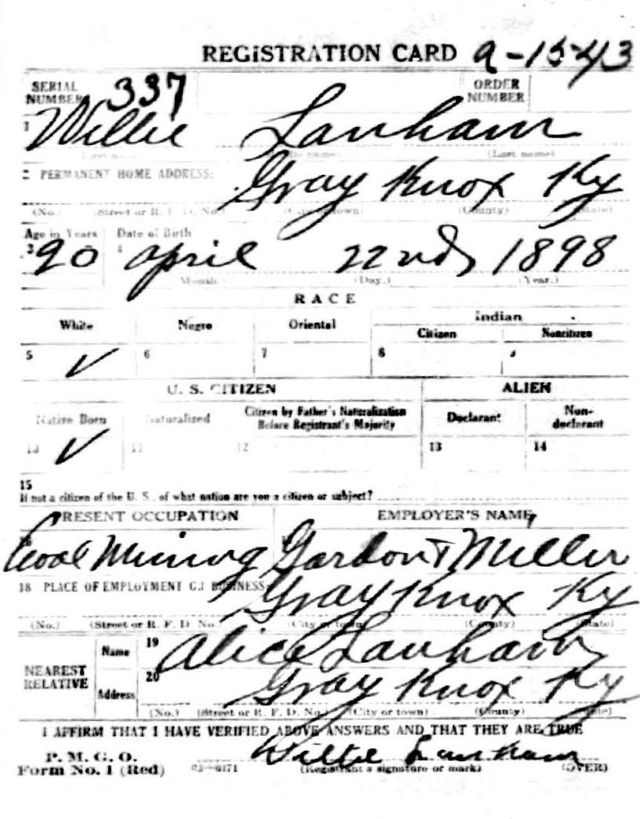 REGISTRATION CARD a-1543
SERIAL NUMBER 337 ORDER NUMBER
1 Willie Lanham
(Last name)
2 PERMANENT HOME ADDRESS:
Gray Knox Ky
(No.) (Street or R. F. D. No.) (City or town) (County) (State)
Age in Years Date of Birth
3 20 4 April 22nd 1898
(Month.) (Day.) (Year.)
RACE
White Negro Oriental Indian
Citizen Noncitizen
5 ✓ 6 7 8
U. S. CITIZEN ALIEN
Native Born Naturalized Citizen by Father's Naturalization Before Registrant's Majority Declarant Non-declarant
10 ✓ 11 12 13 14
15
If not a citizen of the U. S., of what nation are you a citizen or subject?
PRESENT OCCUPATION EMPLOYER'S NAME
Coal Mining Gordon & Miller
18 PLACE OF EMPLOYMENT OR BUSINESS:
Gray Knox Ky
(No.) (Street or R. F. D. No.) (City or town) (County) (State)
NEAREST RELATIVE
Name 19 Alice Lanham
Address 20 Gray Knox Ky
(No.) (Street or R. F. D. No.) (City or town) (County) (State)
I AFFIRM THAT I HAVE VERIFIED ABOVE ANSWERS AND THAT THEY ARE TRUE
P. M. G. O.
Form No. 1 (Red) 03—6171 Willie Lanham
(Registrant's signature or mark) (OVER)